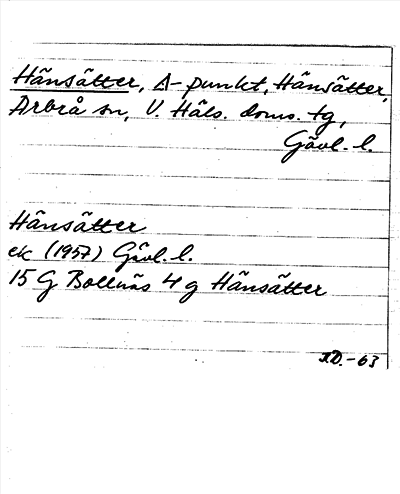 Hänsätter, Δ-punkt, Hänsätter,
Arbrå sn, V. Häls. doms. tg,
Gävl. l.
Hänsätter
ek (1957) Gävl. l.
15 G Bollnäs 4 g Hänsätter
-63